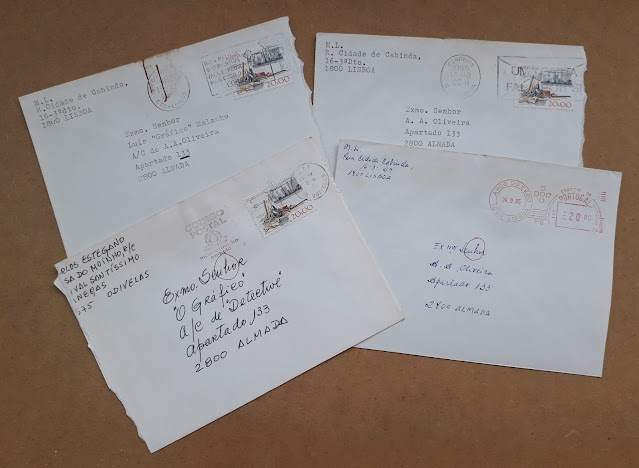 M.L.
R. Cidade de Cabinda,
16-3ºDto.
1800 LISBOA
20.00
Exmo. Senhor
Luís "Gráfico" Salanho
A/C de A.A.Oliveira
Apartado 133
2800 ALMADA
M.L.
R. Cidade de Cabinda,
16-3ºDto.
1800 LISBOA
20.00
Exmo. Senhor
A. A. Oliveira
Apartado 133
2800 ALMADA
CÓDIGO
POSTAL
20.00
RLOS ESTEGANO
SA DO MOINHO, R/C
IVAL SANTÍSSIMO
NEÇAS
75 ODIVELAS
Exmo. Senhor
"O Gráfico"
a/c de "Detective"
Apartado 133
2800 ALMADA
M.L.
Rua Cidade Cabinda,
1800 LISBOA
PORTUGAL
20
Exmo. Senhor
A. A. Oliveira
Apartado 133
2800 ALMADA